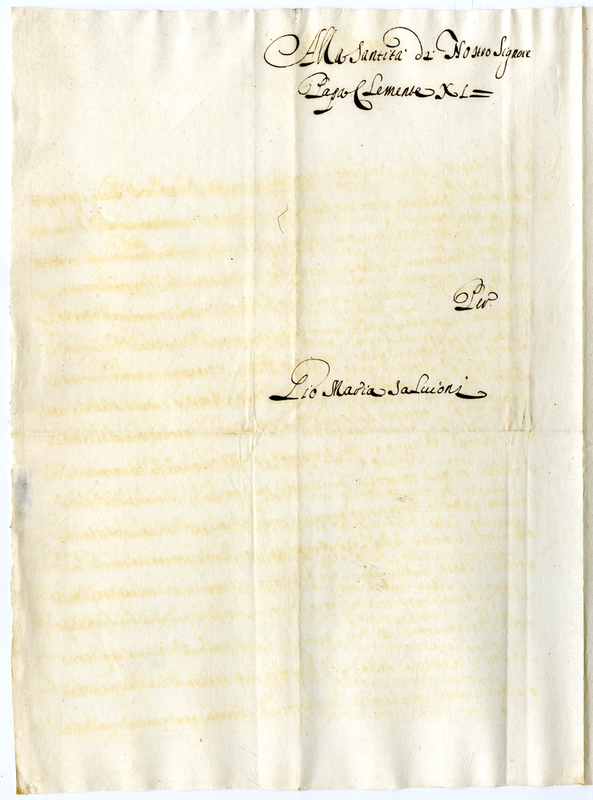 Alla Santità di Nostro Signore
Papa Clemente XI =
Per
Pio Maria Salvioni